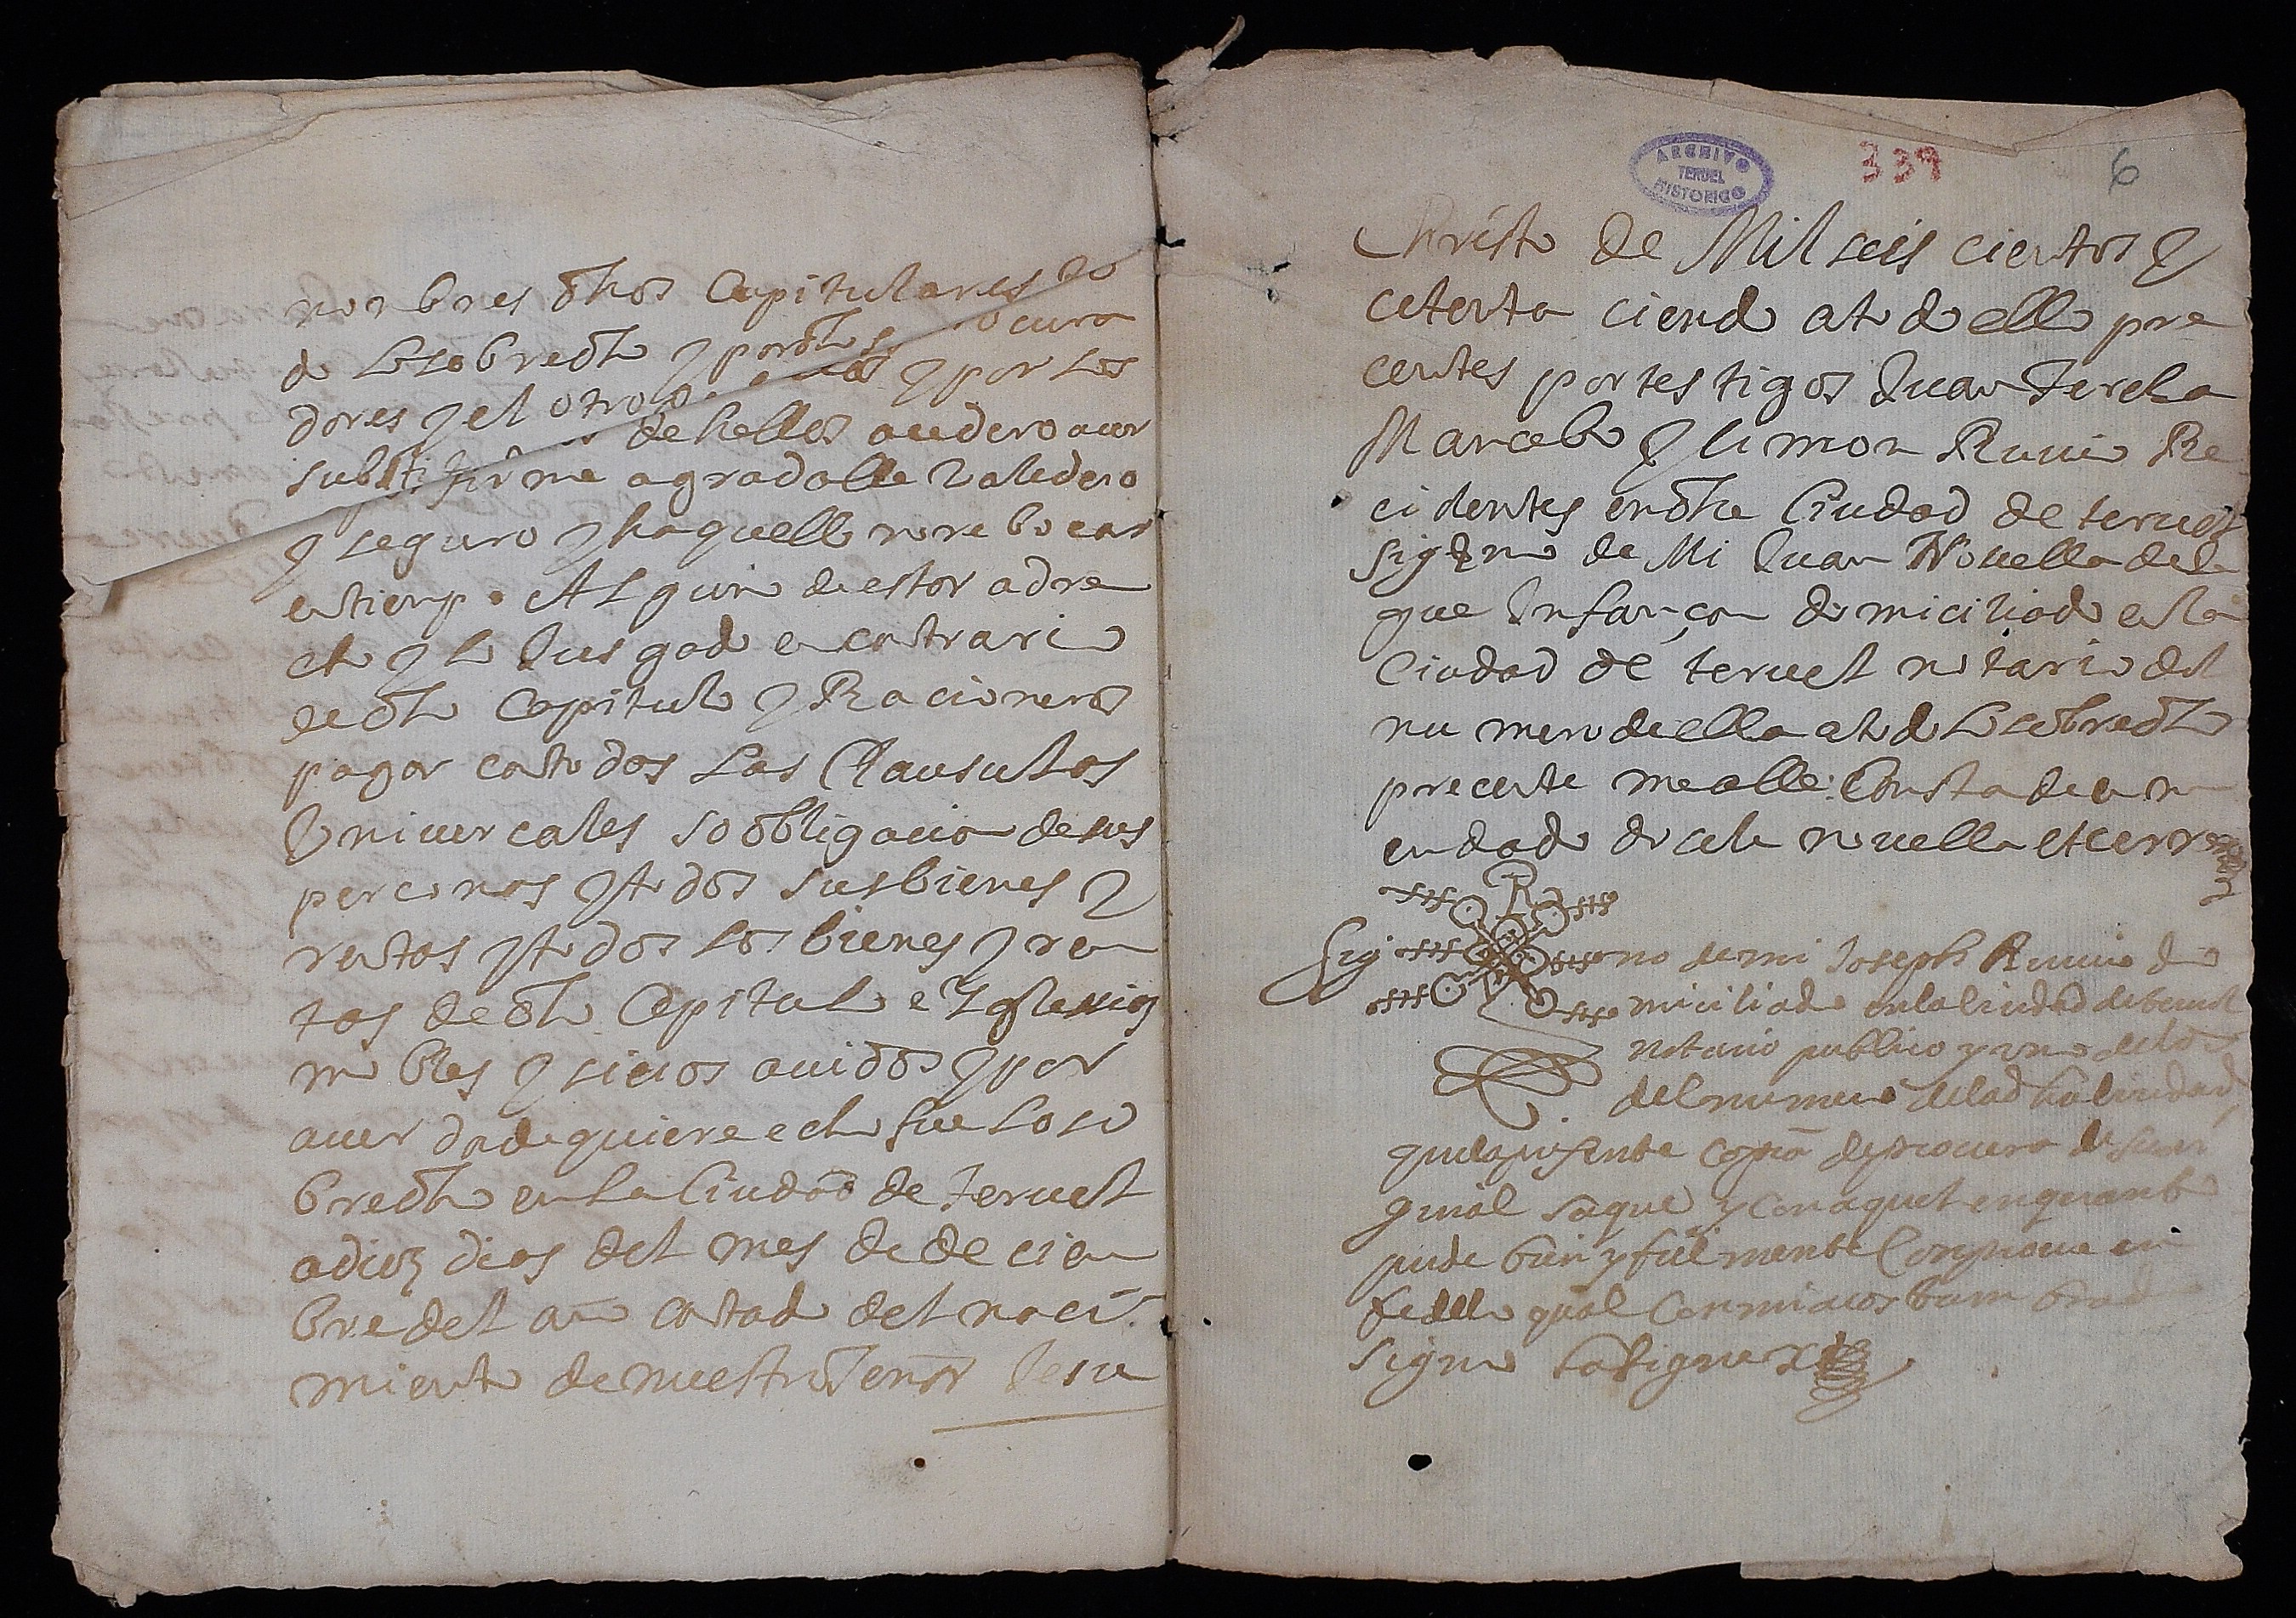 nonbres dhos Capitulares to
do lo sobredho y por dhos ocura
dores y el otro de y por los
substi de hellos aucdero auer
firme agradable valedero
y seguro y haquello no rebocar
en tienpo Alguno de estar a dre
cho y lo Jusgado en contrario
de dho Capitulo y Racioneros
pagar con todos Las Clausulas
Vniuercales so obligacion de sus
perconas y todos sus bienes y
rentas y todos los bienes y ren
tas de dho Capitulo e Yglesias
mobles y sicios auidos y por
auer donde quiere echo fue lo so
bredho en la Ciudad de teruel
a diez dias del mes de decien
bre del año contado del naci
miento de nuestro señor Jesu
ARCHIVO
TERUEL
HISTORICO
339
6
Christo de Mil seis cientos y
cetenta ciendo a todo ello pre
centes por testigos Juan
Marcelo y cimon Ruuio Re
cidentes en dha Ciudad de teruel
sig no de Mi Juan Nouella de
que Infançon domiciliado en la
Ciudad de teruel notario del
numero de ella a todo lo sobredho
precente me alle Consta de en m
endado do se le nouella et cerre
Sig no de mi Joseph Ruuio do
miciliado en la Ciudad de teruel
notario publico y uno de los
del numero de la dha Ciudad
que la presente copia de procura de su ori
ginal saque y con aquel en quanto
pude bien y fielmente Conproue en
fe de lo qual Con mi acostumbrado
signo la signe